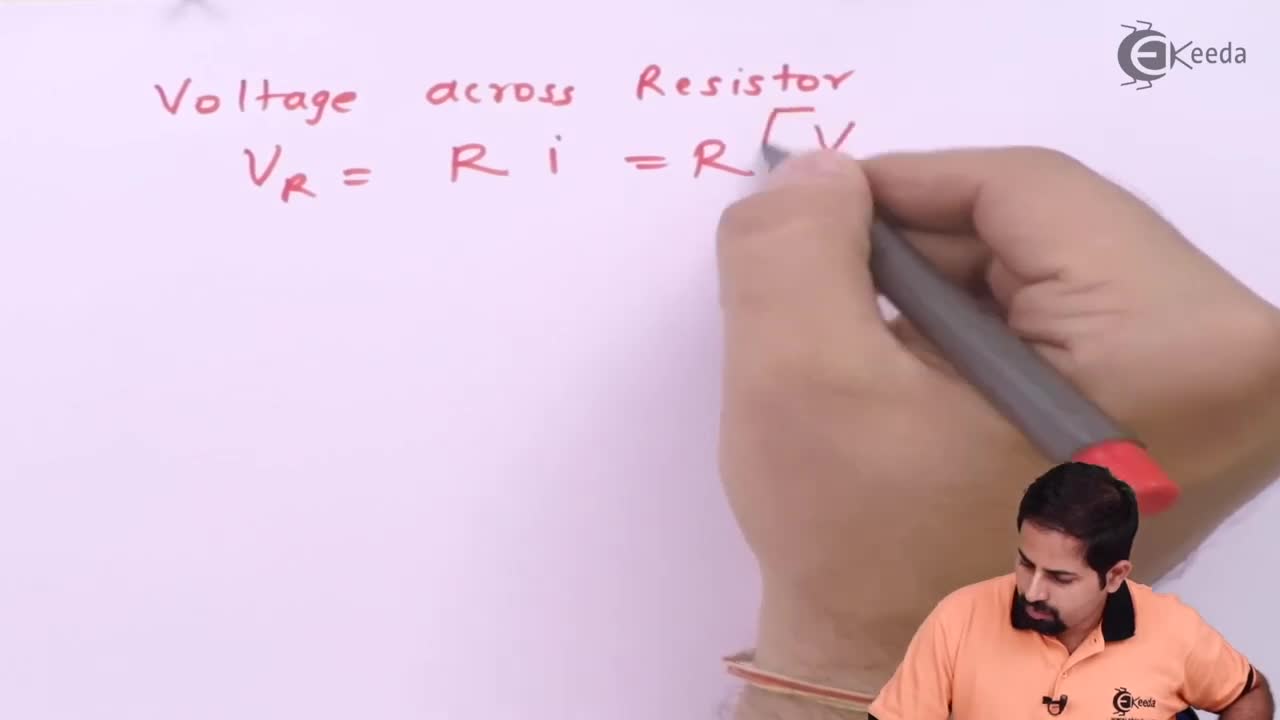 Keeda
Voltage across Resistor
V_R = R i = R [ V
Keeda